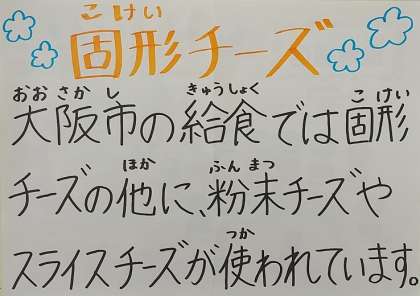 こけい
固形チーズ
おおさかし きゅうしょく こけい
大阪市の給食では固形
ほか ふんまつ
チーズの他に、粉末チーズや
つか
スライスチーズが使われています。